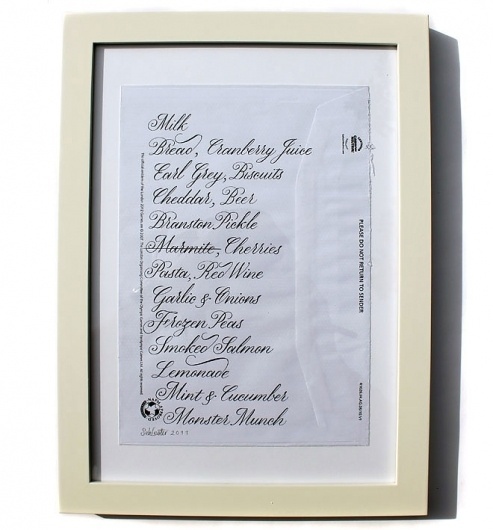 Milk
Bread, Cranberry Juice
Earl Grey, Biscuits
Cheddar, Beer
Branston Pickle
Marmite, Cherries
Pasta, Red Wine
Garlic & Onions
Frozen Peas
Smoked Salmon
Lemonade
Mint & Cucumber
Monster Munch
2011
PLEASE DO NOT RETURN TO SENDER